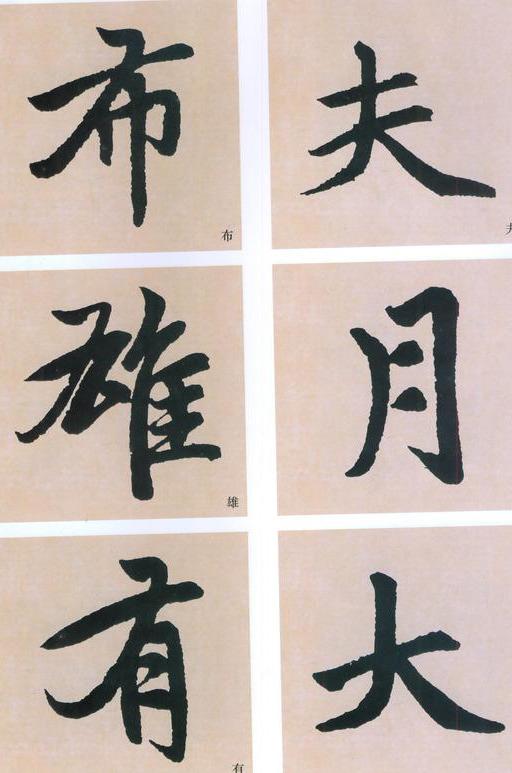 夫
夫
月
大
布
布
雄
雄
有
有